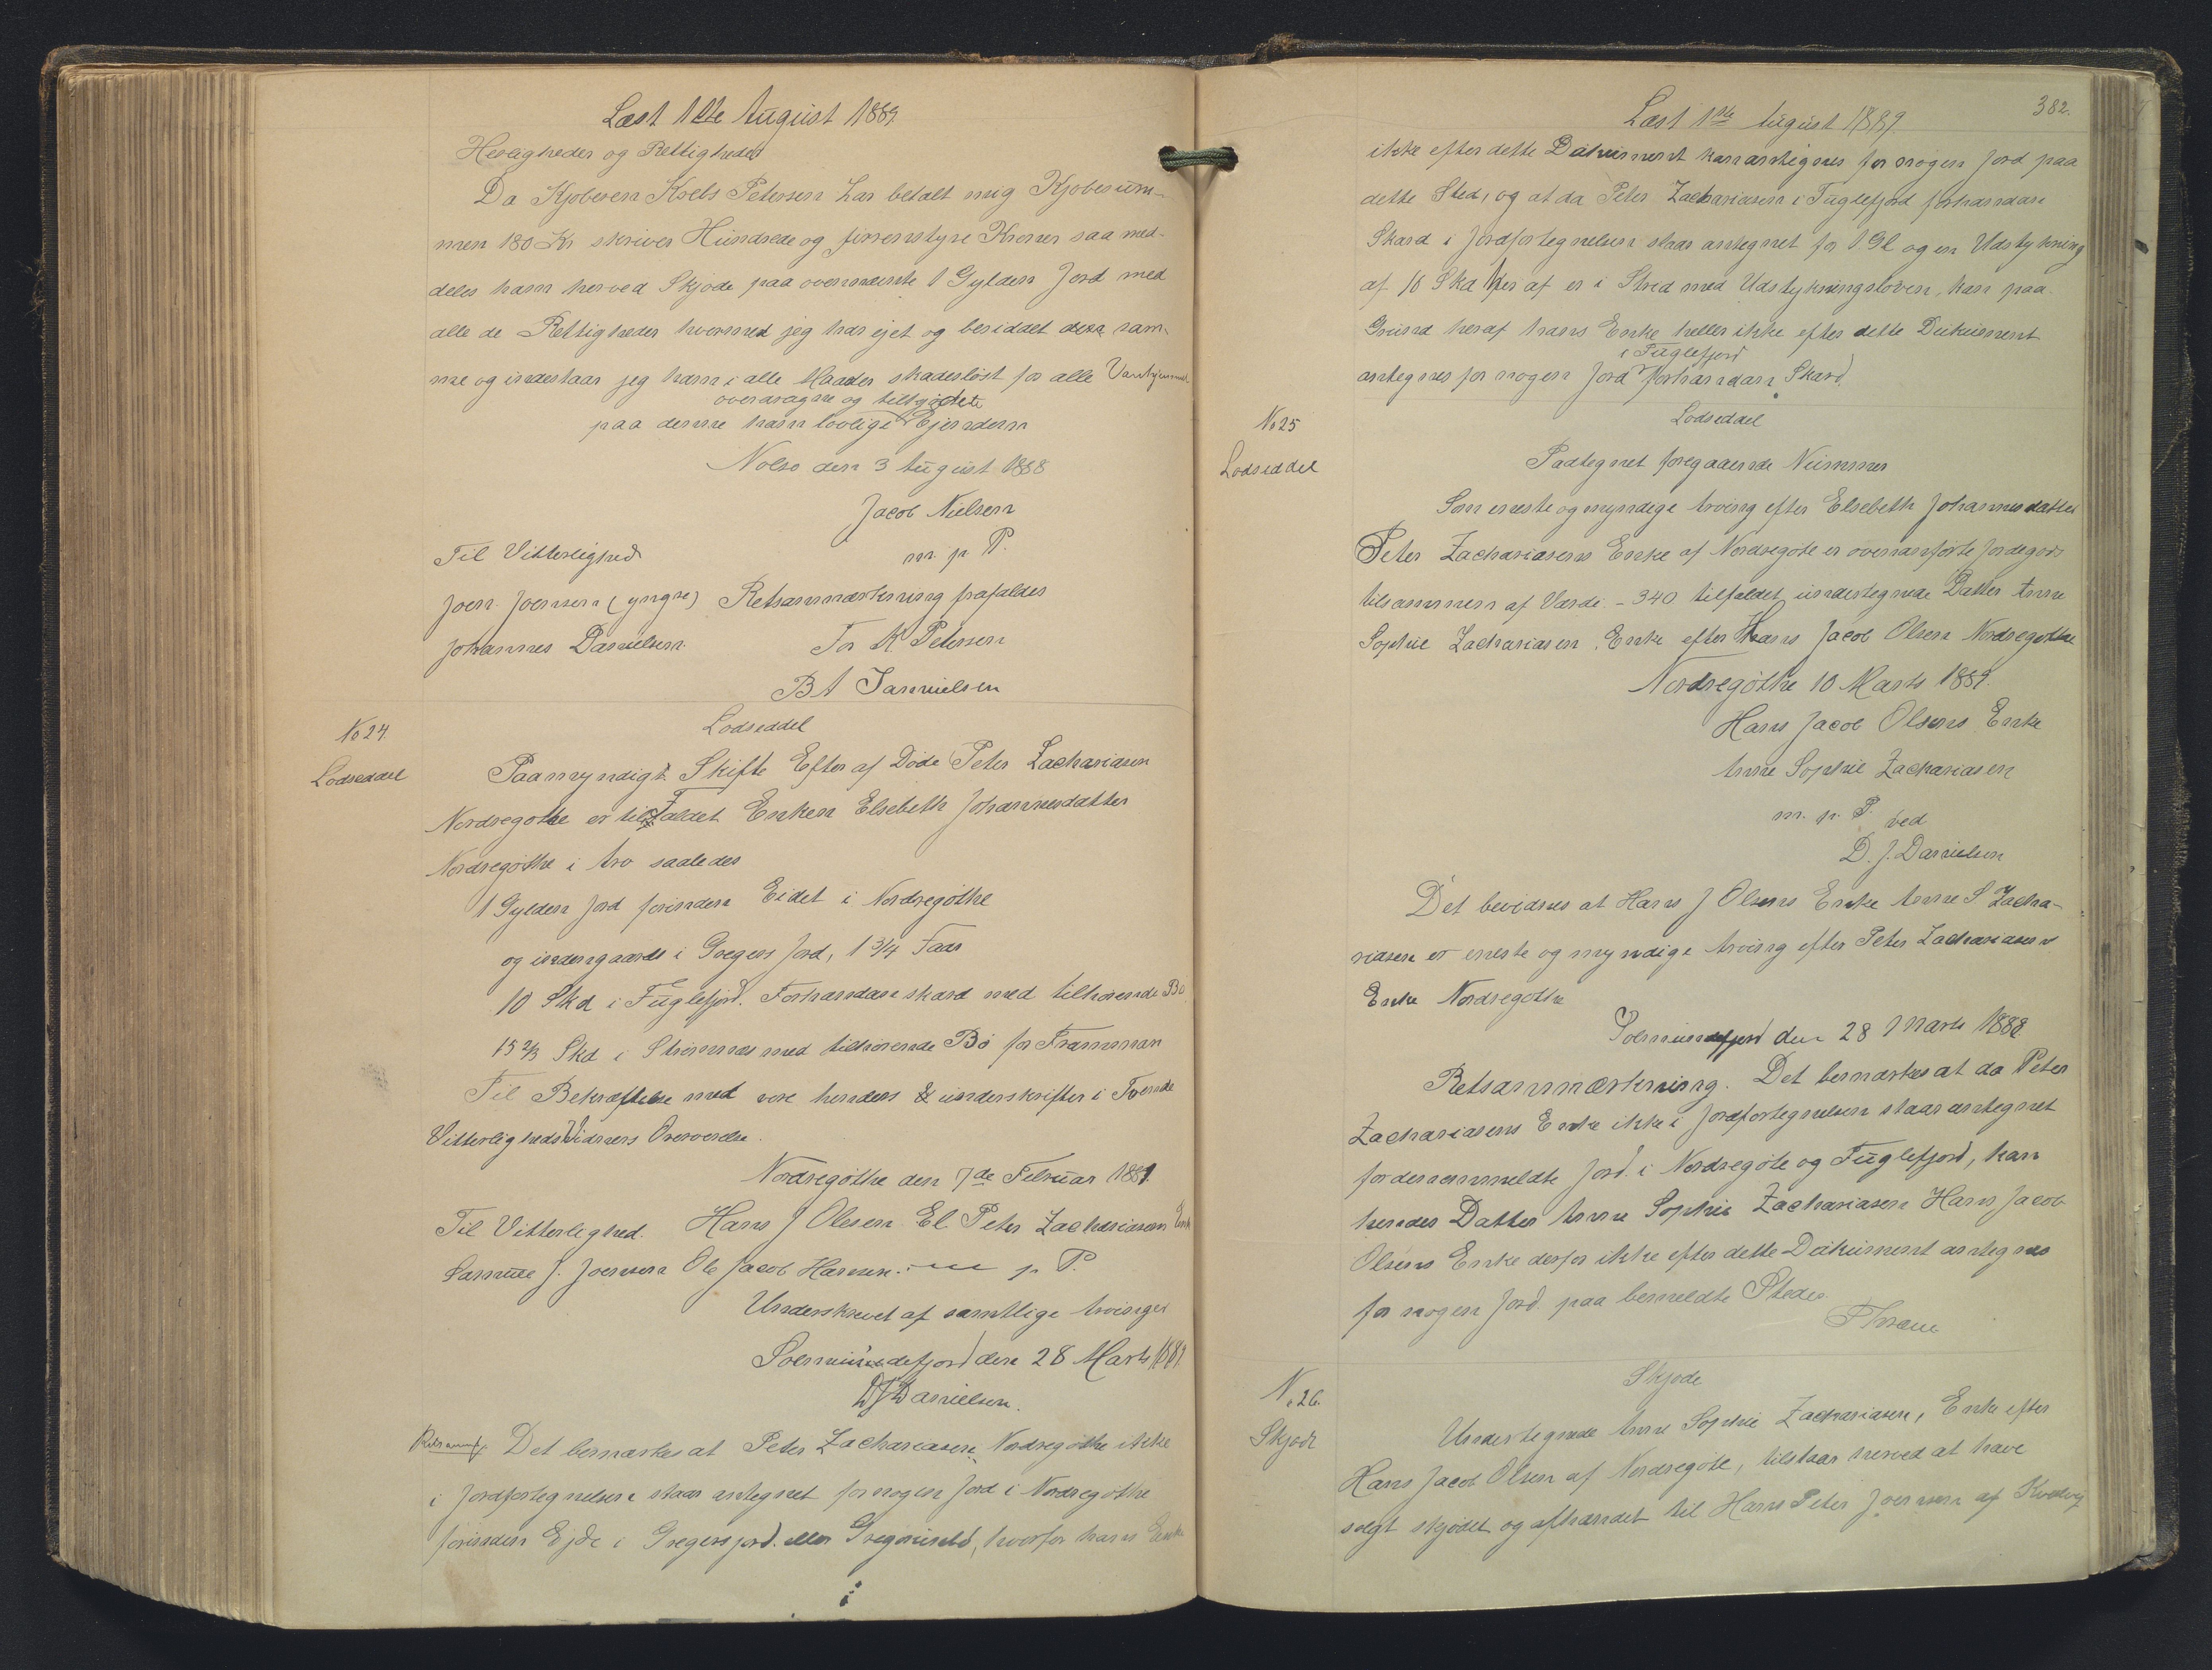 Læst 1ste August 1889
Herligheder og Rettigheder
Da Kjøberen Kvels Petersen har betalt mig Kjøbesum-
men 180 Kr skriver Hundrede og firsenstyve Kroner saa med-
deles ham herved Skjøde paa ovennævnte 1 Gylden Jord med
alle de Rettigheder hvormed jeg har ejet og besiddet den sam-
me og indestaar jeg ham i alle Maader skadesløst for alle Vanhjemmel
overdragne og tilskjødete
paa denne ham lovlige Ejendom
Nolsø den 3 August 1888
Jacob Nielsen
Til Vitterlighed m p P.
Joen Joensen (yngre) Retsanmærkning frafaldes
Johannes Danielsen. For K Petersen
B A Samuelsen
No 24. Lodseddel
Lodseddel Paa myndigt Skifte Efter af Døde Peter Zachariasen
Nordregøthe er tilfaldet Enken Elsebeth Johannesdatter
Nordregøthe i Arv saaledes
1 Gylden Jord forinden Eidet i Nordregøthe
og indengaards i Gregers Jord, 1 3/4 Faar
10 Skd i Fuglefjord. Forhandan skard med tilhørende Bø
15 2/3 Skd i Strømnæs med tilhørende Bø for Framman
Til Bekræftelse med vore henders & underskrifter i Tvende
Vitterligheds Vidners Overværelse.
Nordregøthe den 7de Februar 1881
Til Vitterlighed. Hans J Olesen El Peter Zachariasen Enke
Samuel J. Joensen Ole Jacob Hansen. m p P.
Underskrevet af samtlige Arvinger
Solmundefjord den 28 Marts 1889
D J Danielsen.
Retsanmk. Det bemærkes at Peter Zachariasen Nordregøthe ikke
i Jordfortegnelsen staar antegnet for nogen Jord i Nordregøthe
forinden Ejde i Gregersjord. eller, hvorfor hans Enke
382.
Læst 1ste August 1889.
ikke efter dette Dokument kan antegnes for nogen Jord paa
dette Sted, og at da Peter Zachariasen i Fuglefjord forhandan
Skard i Jordfortegnelsen staar antegnet for 1 Gl og en Udstykning
af 10 Skd heraf er i Strid med Udstykningsloven, kan paa
Grund heraf hans Enke heller ikke efter dette Dokument
i Fuglefjord
antegnes for nogen Jord forhandan Skard.
No 25 Lodseddel
Lodseddel Paategnet foregaaende Nummer
Som eneste og myndige Arving efter Elsebeth Johannesdatter
Peter Zachariasens Encke af Nordregøte er ovenanførte Jordegods
tilsammen af Værdi - 340 tilfaldet undertegnede Datter Anne
Sophie Zachariasen, Enke efter Hans Jacob Olsen Nordregøthe
Nordregøthe 10 Marts 1889.
Hans Jacob Olsens Enke
Anne Sophie Zachariasen
m. p. P. ved
D. J. Danielsen
Det bevidnes at Hans J Olsens Enke Anne S. Zacha-
riasen er eneste og myndige Arving efter Peter Zachariasens
Enke Nordregøthe
Solmundefjord den 28 Marts 1889
Retsanmærkning. Det bemærkes at da Peter
Zachariasens Enke ikke i Jordfortegnelsen staar antegnet
for den anmeldte Jord i Nordregøte og Fuglefjord, kan
hendes Datter Anne Sophie Zachariasen Hans Jacob
Olsens Enke derfor ikke efter dette Dokument antegnes
for nogen Jord paa bemeldte Steder.
No 26. Skjøde
Skjøde Undertegnede Anne Sophie Zachariasen, Enke efter
Hans Jacob Olsen af Nordregøte, tilstaar herved at have
solgt skjødet og afhændet til Hans Peter Joensen af Kvalvig